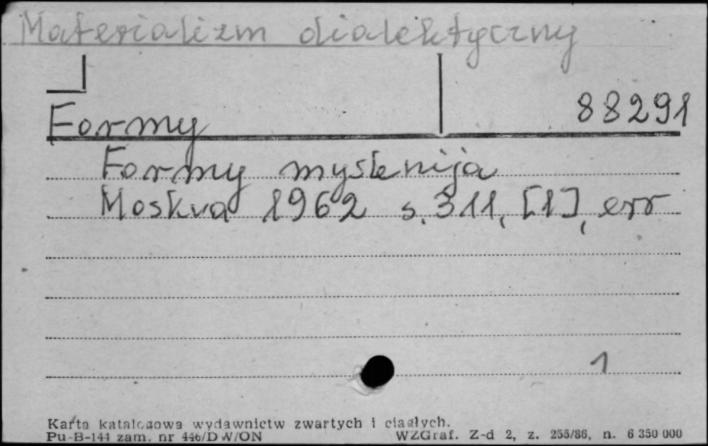 Materializm dialektyczny
Formy 88291
Formy myslenija
Moskva 1962 s. 311, [1], err
1
Karta katalogowa wydawnictw zwartych i ciągłych.
Pu-B-144 zam. nr 446/DW/ON WZGraf. Z-d 2, z. 255/86, n. 6 350 000